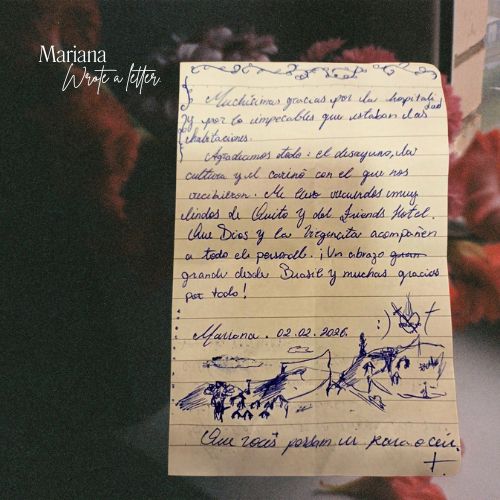 Mariana
Wrote a letter.
Muchísimas gracias por la hospitalidad
y por lo impecables que estaban las
habitaciones.
Agradecemos todo: el desayuno, la
cultura y el cariño con el que nos
recibieron. Me llevo recuerdos muy
lindos de Quito y del Friends Hotel.
Que Dios y la Virgencita acompañen
a todo el personal. ¡Un abrazo gran
grande desde Brasil y muchas gracias
por todo!
Mariana. 02.02.2026. :)
Que vocês possam ir para o céu.